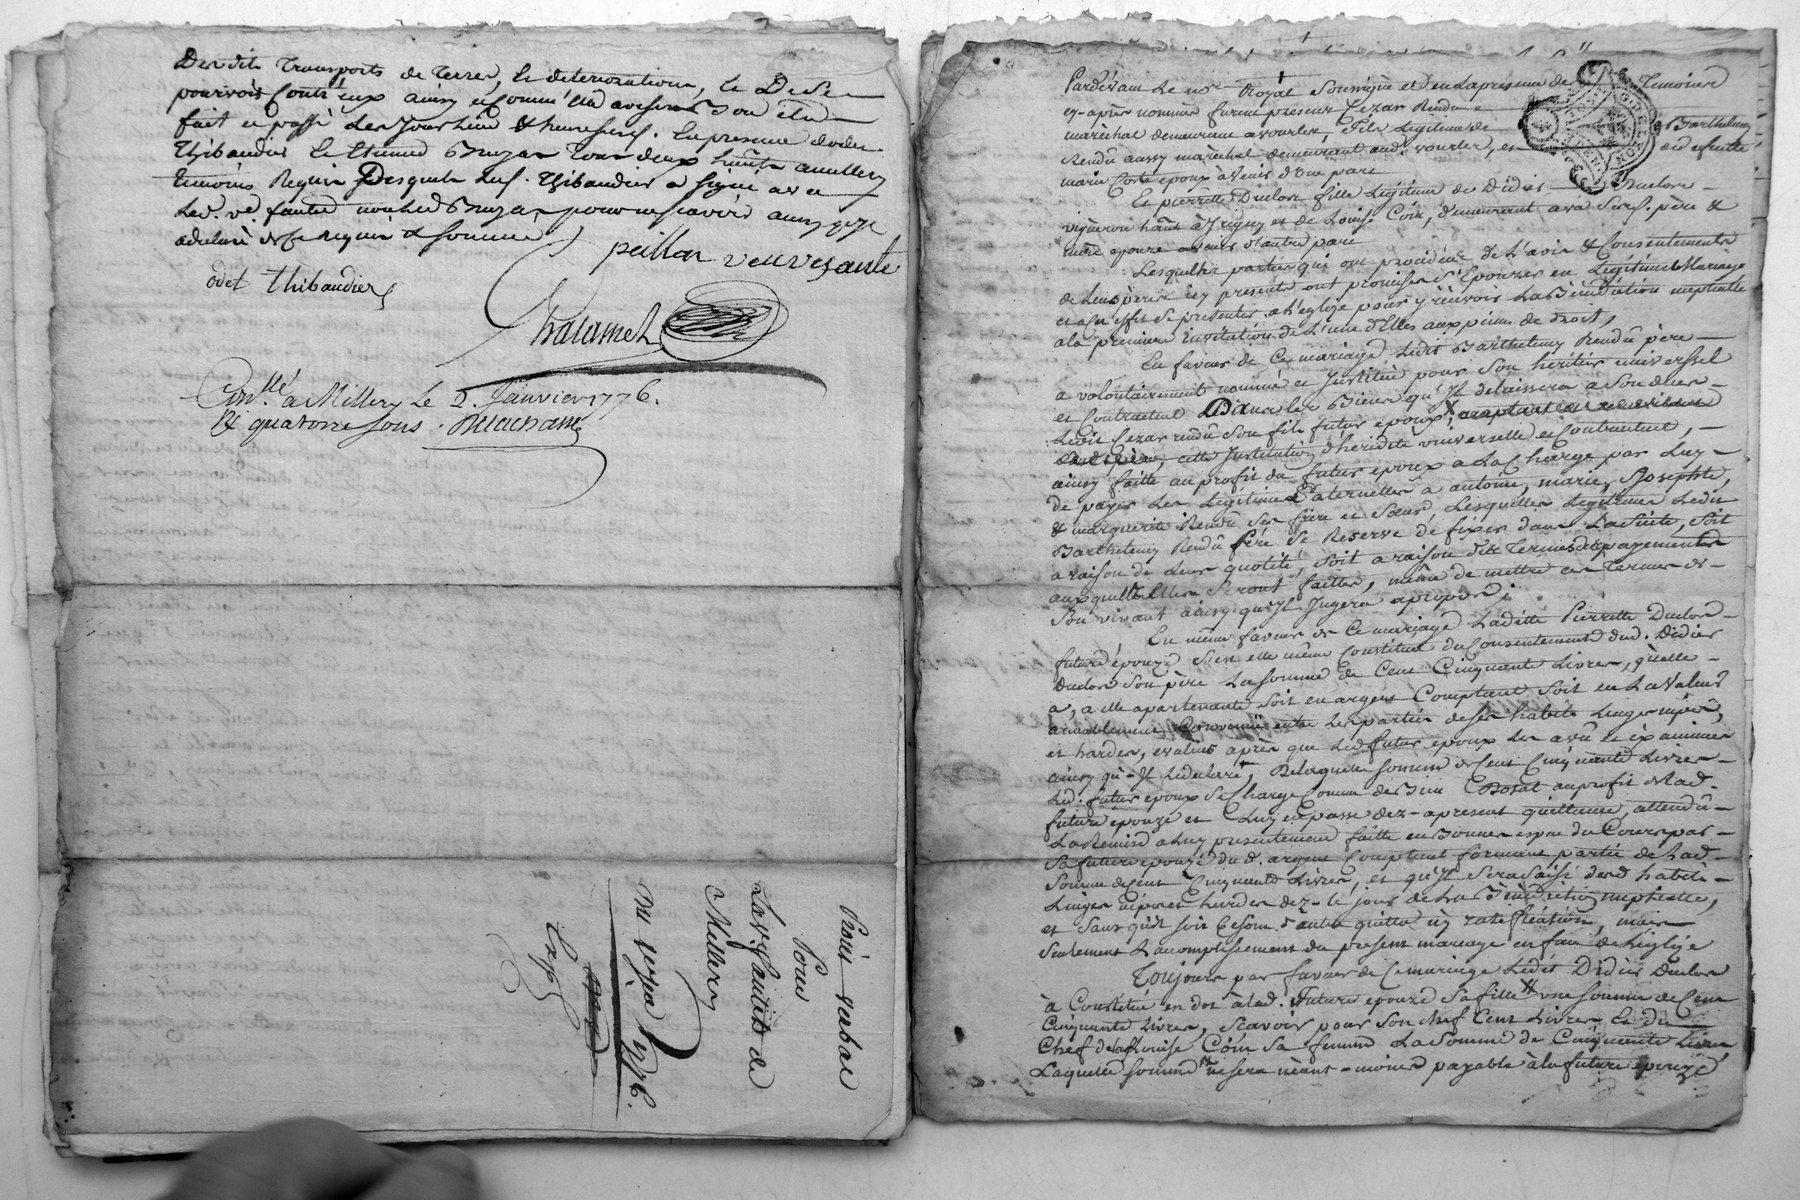 Desdits Transports de Terres, le deteriorations, le De Se
pourvoir Contr'eux ainsy et comme Elle avisera Dont êté
fait et passé Les jour Lieu & heure susd. En presence d'odet
Thibaudier le Etienne Bruyas Tous deux hants amillery
temoins Requis Desquels Led. Thibaudier a signé avec
Led. ve. fautes non led Bruyas pour ne scavoir ainsy qu'il
a declaré de ce Requis & sommé
peillon veuve
odet thibaudier
Chalamel
Con.llé à Millery le 2. Janvier 1776.
R quatorze sous.
Procès verbal
Pour
de
Millery
Du 1776.
Exp.
Pardevant Le no.re Royal Soussigné et En la presence des Temoins
cy-après nommés furent presents Cezar Rendu
maréchal demeurant a vourles, Fils Legitime de Barthelemy
Rendû aussy maréchal demeurant aud. vourles, et de deffunte
marie Coste epoux a venir d'une part
Et pierrette Duclos fille Legitime de Didier Duclos
vigneron hant à Irigny et de Louise Coin, demeurant avec Sesd. père &
mère epouze avenir d'autre part
Lesquelles parties qui ont procédé de L'avis & Consentement
de Leurs pères icy presents ont promis de S'Epouzer en Légitime Mariage
et a cet effet de se presenter a l'église pour y reçevoir La Bénédiction nuptialle
a la premiere invitation de L'une d'Elles aux peines de droit,
En faveur de Ce mariage Ledit Barthelemy Rendû père
a volontairement nommé et Institué pour Son héritier universsel
et Contractuel Dans les Biens qu'Il delaissera a Son deces
Ledit Cezar rendû Son fils futur epoux,
cette Institution d'héridité universelle et Contractuel,
ainsy faitte au profit du futur epoux a La Charge par Luy
de payer Les Légitimes Paternelles à antoine, marie, Josephte,
& marguerite Rendû Ses frère et Sœurs, Lesquelles Legitimes Ledit
Barthelemy Rendû Père Se Reserve de fixer dans La Suite, soit
a raison de Leur quotité, Soit a raison des Termes de payements
auxquels Elles Seront faittes, même de mettre ces Termes de
Son vivant ainsy qu'Il Jugera apropos;
En même faveur de Ce mariage Ladite Pierrette Duclos
future épouze S'est elle même Constitué du Consentement dud. Didier
Duclos Son père La Somme de Cent Cinquante Livres, qu'elle
a, a elle apartenante Soit en argent Comptant Soit en La Valeur
amiablement Convenüe entre Les parties de ses habits Linges nipes,
et hardes, evalués après que Led futur epoux Les a vû et examiné
ainsy qu-Il Ledeclare, De laquelle Somme de Cent Cinquante Livres
Led. futur epoux Se Charge Comme de Bien Dotal au profit de Lad.
future epouze et Luy en passe dez-apresent quittance, attendû
La Remise a Luy presentement faitte en Bonnes espece du Cours par
Sa future epouze dud. argent Comptant formant partie de Lad.
Somme de Cent Cinquante Livres, et qu'Il Sera Saisi desd habits
Linges nipes et hardes dez-le jour de La Bénédiction nuptialle,
et Sans qu'il Soit besoin d'autre quittance ny ratiffication, mais
Seulement L'accomplissement du present mariage en face de L'église
Toujours par faveur de Ce mariage Ledit Didier Duclos
à Constitué en dot à lad. Future epouze Sa fille une Somme de Cent
Cinquante Livres, Scavoir pour Son chef Cent Livres Et du
Chef de lad Louise Coin Sa femme La Somme de Cinquante Livres
Laquelle Somme ne sera néant-moins payable à la future epouze